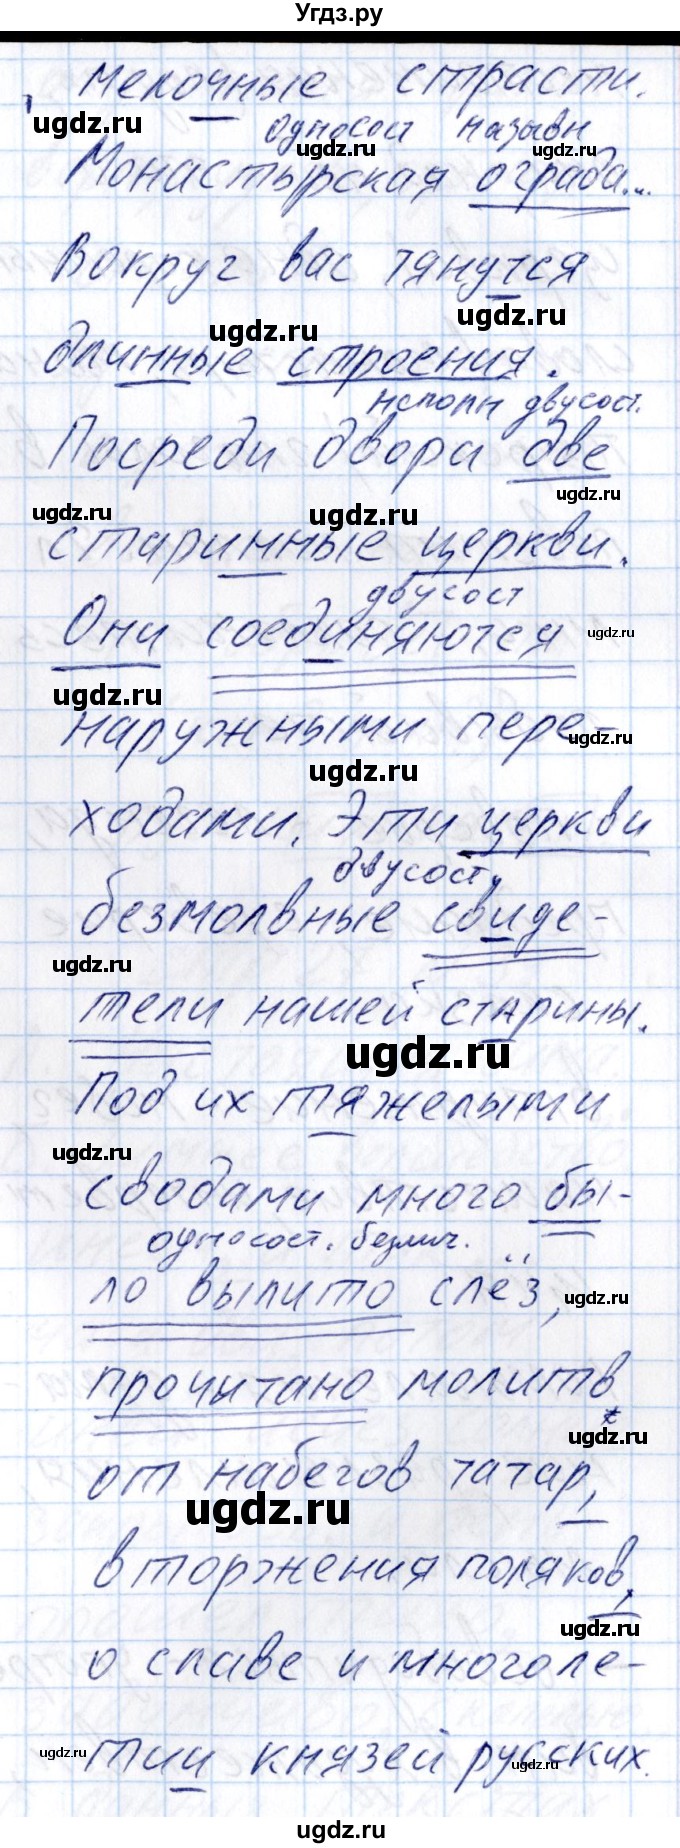 Угдз.ру
мелочные страсти.
ugdz.ru
односост назывн
ugdz.ru ugdz.ru
Монастырская ограда...
Вокруг вас тянутся
ugdz.ru ugdz.ru
длинные строения.
неполн двусост.
Посреди двора две
ugdz.ru
ugdz.ru ugdz.ru
старинные церкви.
двусост
Они соединяются
ugdz.ru
ugdz.ru
наружными пере-
ugdz.ru
ugdz.ru
ходами. Эти церкви
двусост.
безмолвные свиде-
ugdz.ru
тели нашей старины.
ugdz.ru
Под их тяжелыми
ugdz.ru
сводами много бы-
односост. безлич.
ло вылито слёз,
ugdz.ru
прочитано молитв
ugdz.ru
от набегов татар,
ugdz.ru
вторжения поляков,
ugdz.ru
о славе и многоле-
ugdz.ru
тии князей русских.
ugdz.ru
ugdz.ru